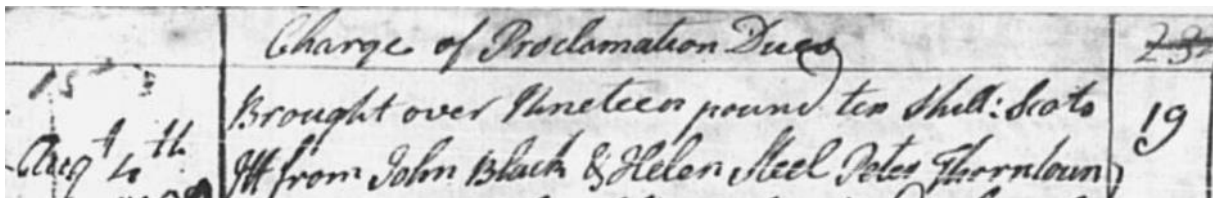 Charge of Proclamation Dues
Brought over Nineteen pound ten Shill: Scots 19
Augt 4th It from John Black & Helen Steel Peter Thorntoun